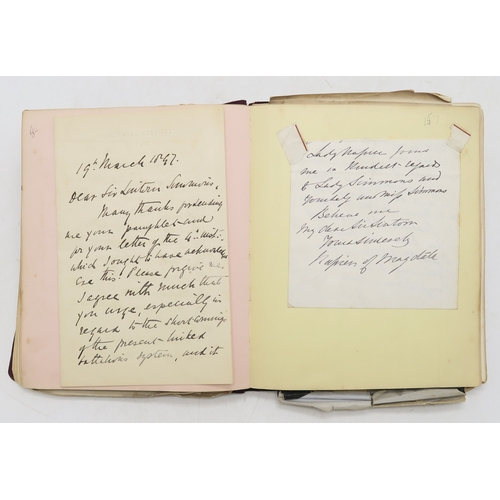 19th March 1897.
Dear Sir Lintorn Simmons,
Many thanks for sending
me your pamphlet and
for your letter of the 4th inst:
which I ought to have acknowledged
ere this. Please forgive me.
I agree with much that
you urge, especially in
regard to the shortcomings
of the present linked
battalions system, and it
Lady Napier joins
me in kindest regards
to Lady Simmons and
yourself and Miss Simmons
Believe me
My dear Sir Lintorn
Yours sincerely
Napier of Magdala